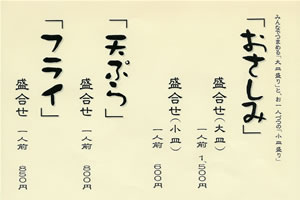 みんなでつまめる「大皿盛り」と、お一人づつの「小皿盛り」
「おさしみ」
盛合せ(大皿)
一人前 1,500円
盛合せ(小皿)
一人前 600円
「天ぷら」
盛合せ 一人前 800円
「フライ」
盛合せ 一人前 850円